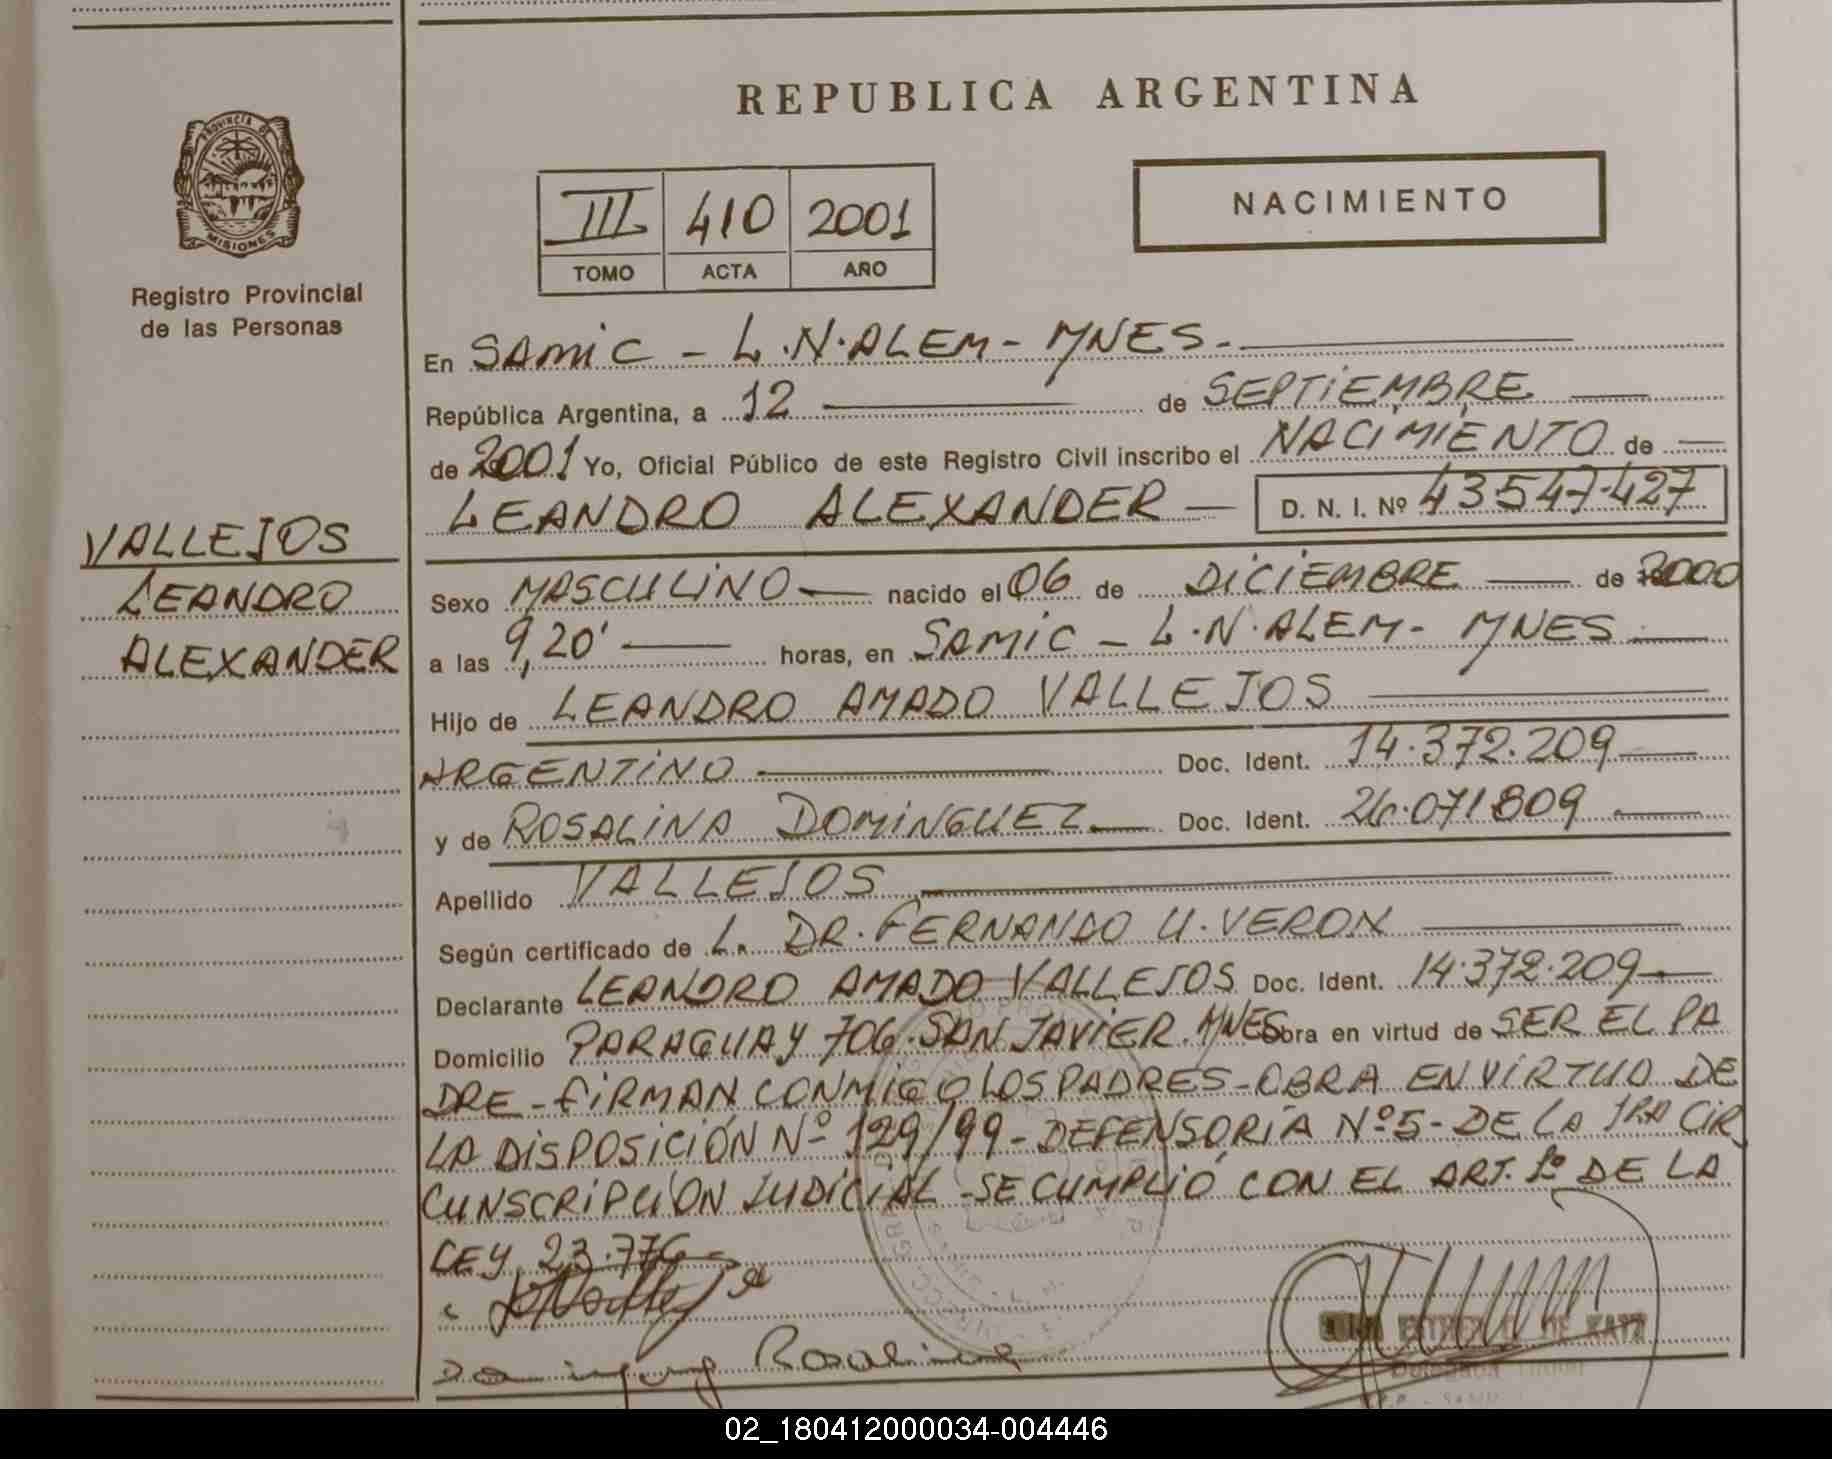 PROVINCIA DE
MISIONES
Registro Provincial
de las Personas
VALLEJOS
LEANDRO
ALEXANDER
REPUBLICA ARGENTINA
III 410 2001
TOMO ACTA AÑO
NACIMIENTO
En SAMIC - L.N. ALEM - MNES.-
República Argentina, a 12 de SEPTIEMBRE
de 2001 Yo, Oficial Público de este Registro Civil inscribo el NACIMIENTO de
LEANDRO ALEXANDER D. N. I. Nº 43547427
Sexo MASCULINO nacido el 06 de DICIEMBRE de 2000
a las 9,20' horas, en SAMIC - L.N. ALEM - MNES
Hijo de LEANDRO AMADO VALLEJOS
ARGENTINO Doc. Ident. 14.372.209
y de ROSALINA DOMINGUEZ Doc. Ident. 26.071809
Apellido VALLEJOS
Según certificado de L. DR. FERNANDO U. VERON
Declarante LEANDRO AMADO VALLEJOS Doc. Ident. 14.372.209
Domicilio PARAGUAY 706. SAN JAVIER. MNES obra en virtud de SER EL PA
DRE - FIRMAN CONMIGO LOS PADRES - OBRA EN VIRTUD DE
LA DISPOSICIÓN Nº 129/99 - DEFENSORIA Nº 5 - DE LA 1RA CIR
CUNSCRIPCION JUDICIAL - SE CUMPLIO CON EL ART. 1º DE LA
LEY 23.776
Rosalina
DE KATZ
02_180412000034-004446